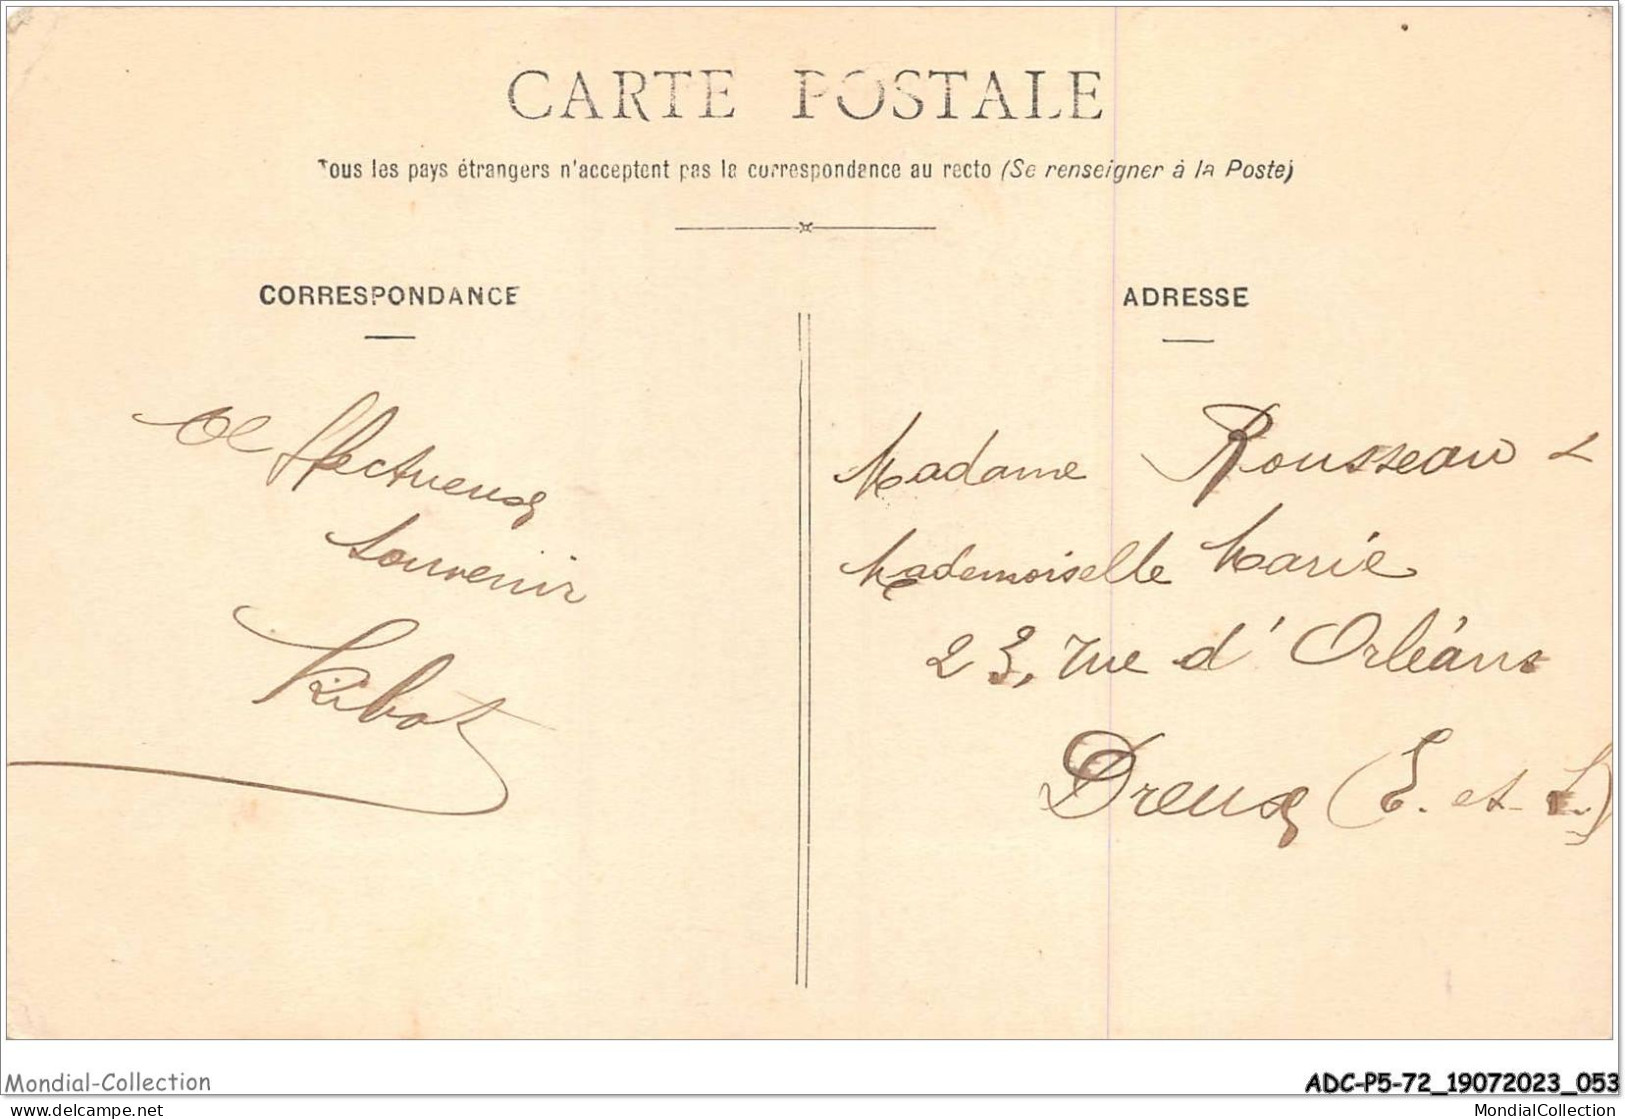 CARTE POSTALE
Tous les pays étrangers n'acceptent pas la correspondance au recto (Se renseigner à la Poste)
CORRESPONDANCE
Affectueux
souvenir
Ribot
ADRESSE
Madame Rousseau &
Mademoiselle Marie
23, rue d'Orléans
Dreux (E. et L.)
Mondial-Collection
ADC-P5-72_19072023_053
delcampe.net
MondialCollection